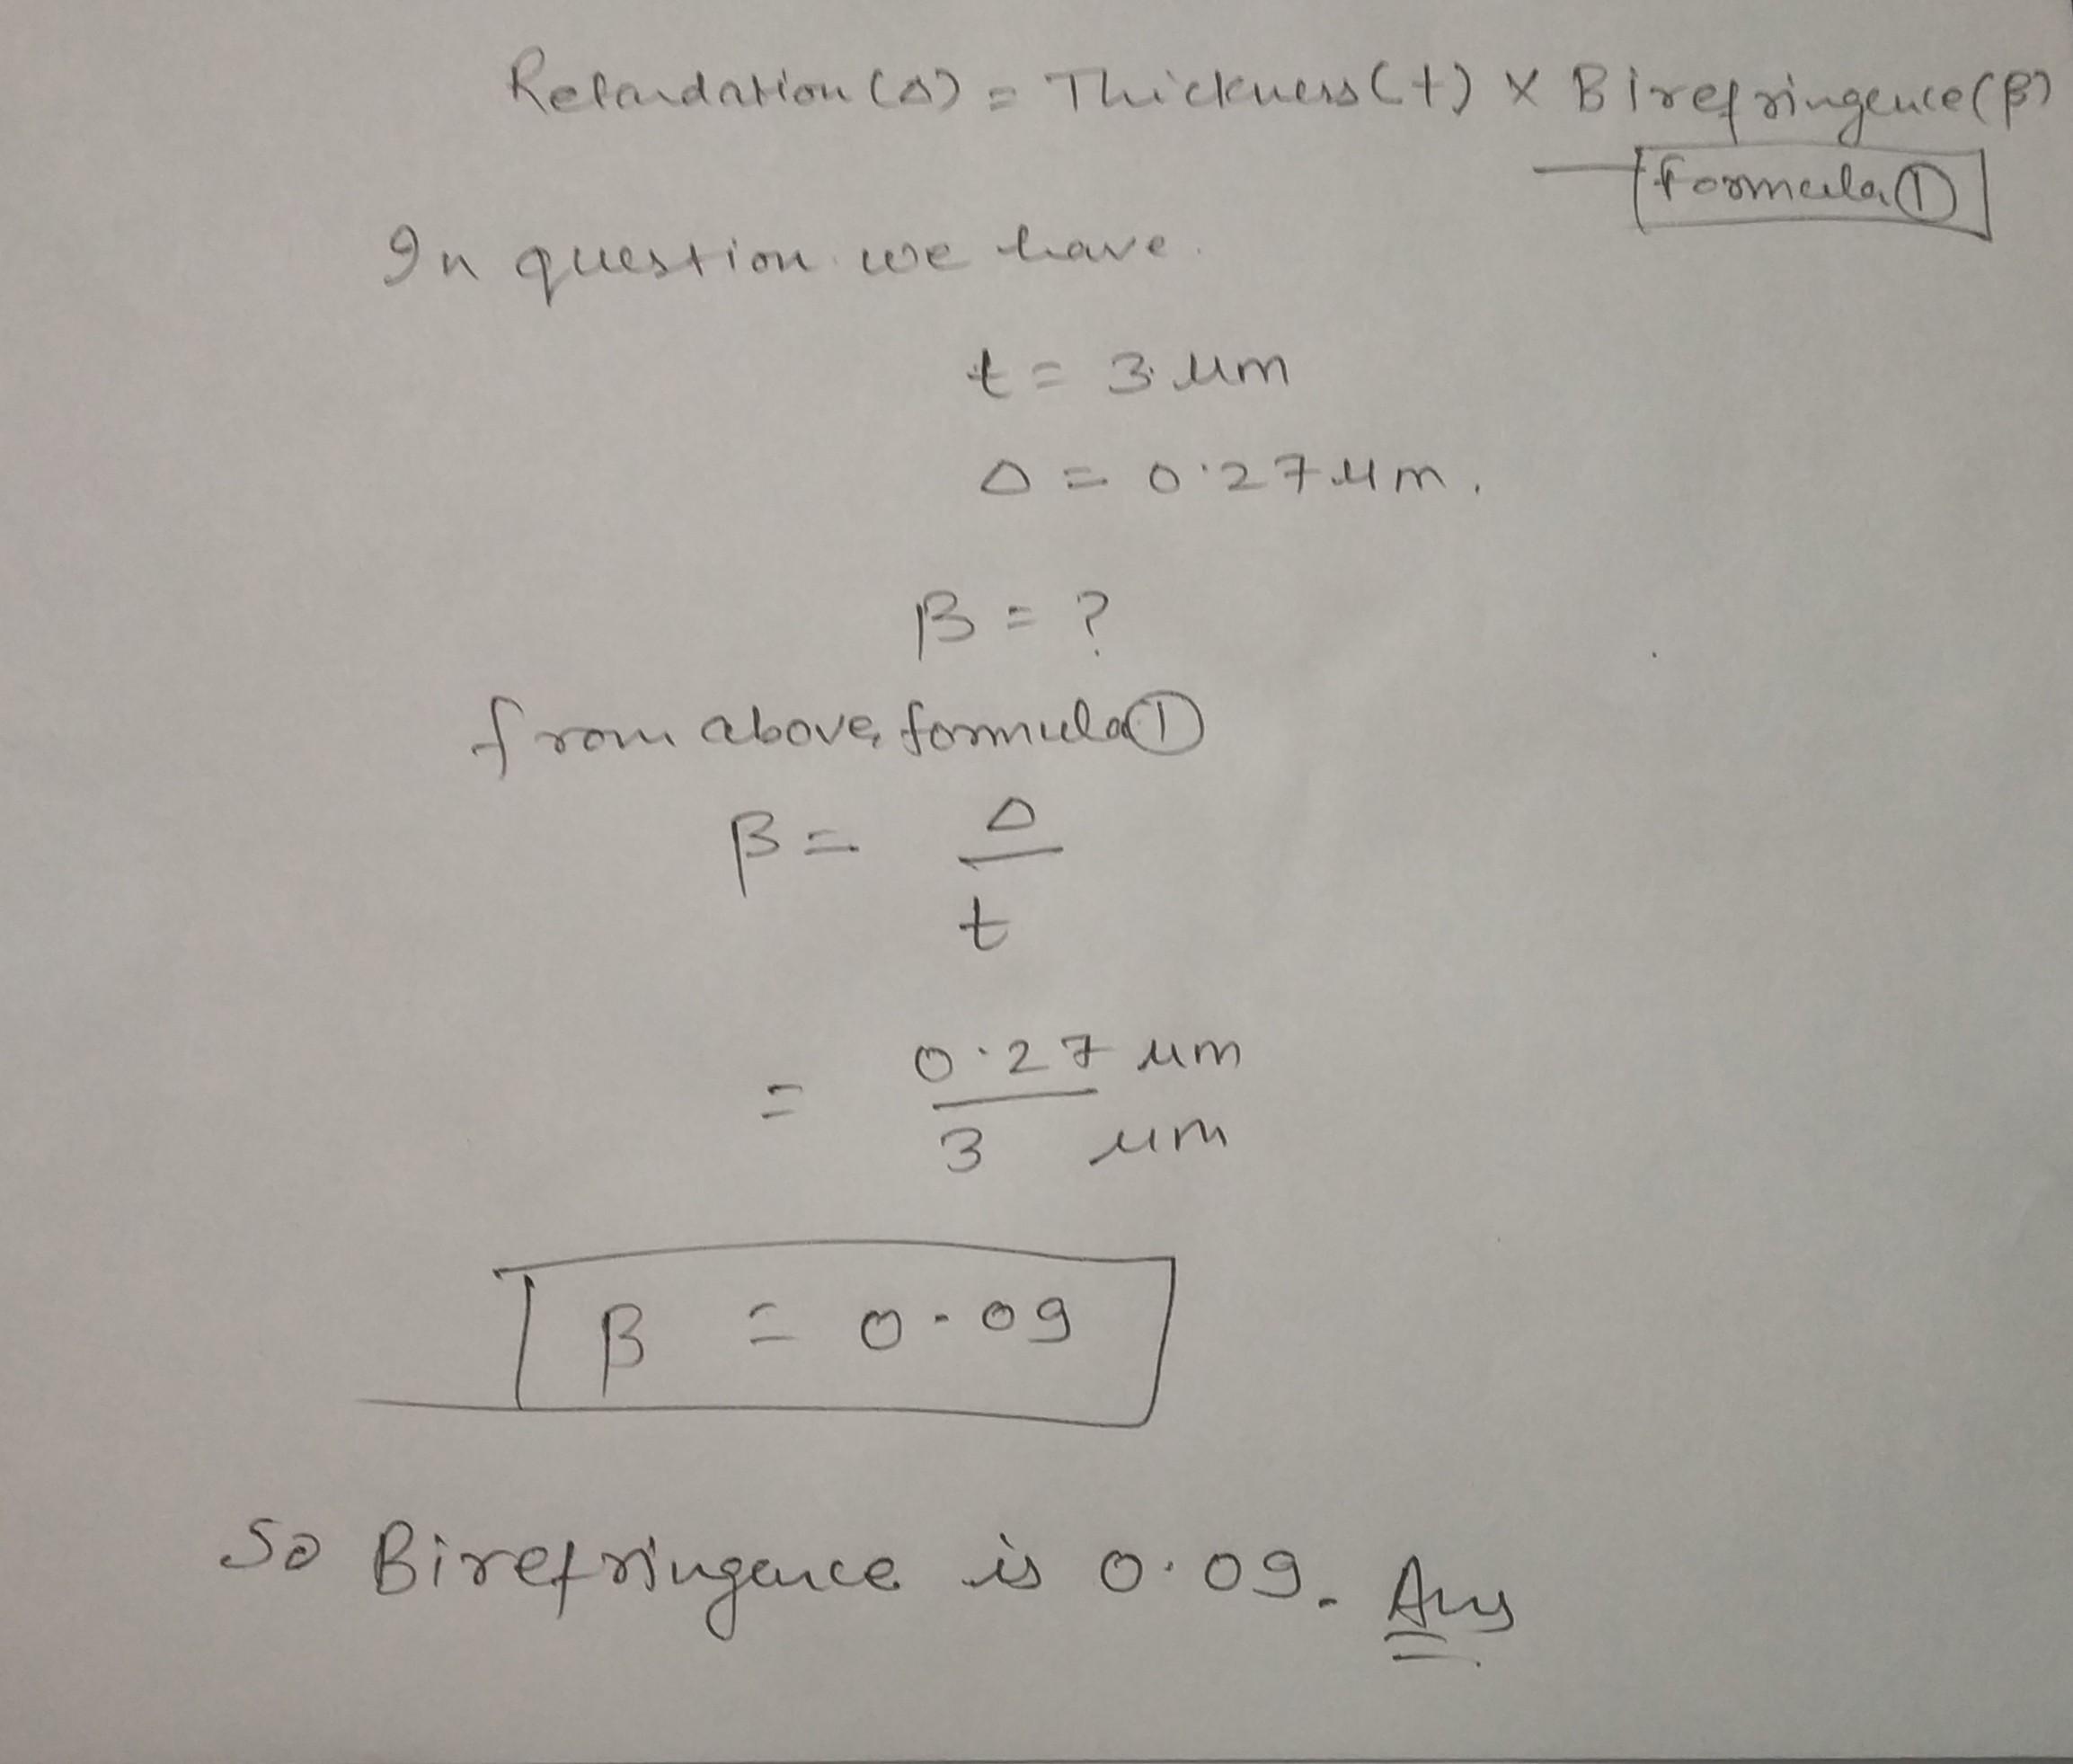 Retardation (Δ) = Thickness (t) × Birefringence (β)
— Formula ①
In question we have.
t = 3 μm
Δ = 0.27 μm.
β = ?
from above formula ①
β = Δ
t
= 0.27 μm
3 μm
β = 0.09
So Birefringence is 0.09. Ans